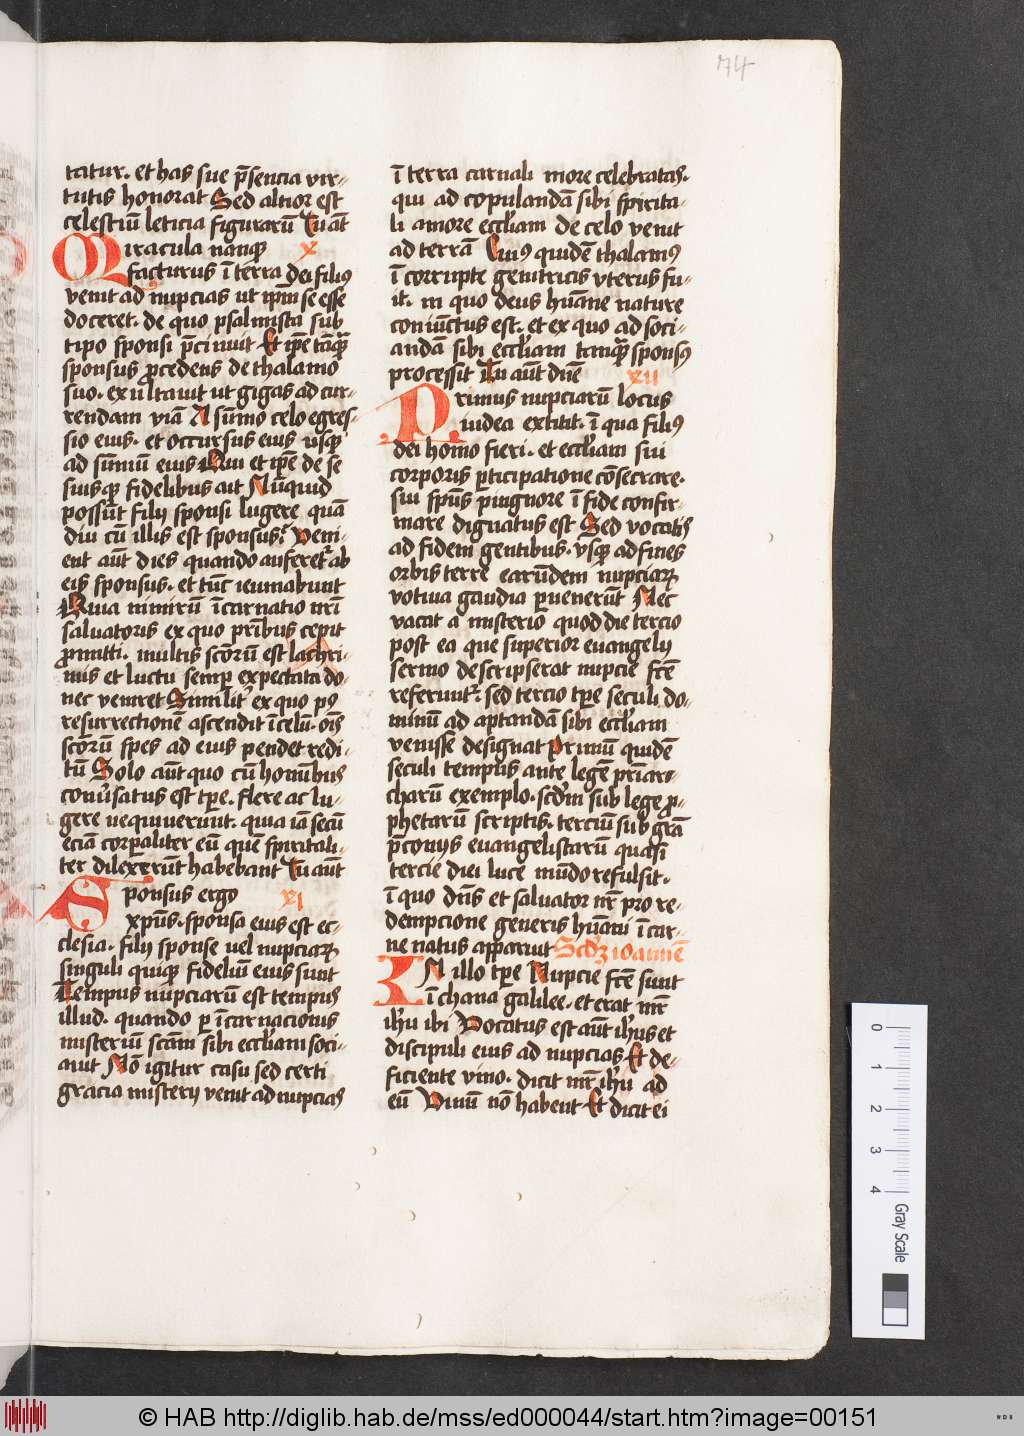 74
tatur. et has sue p̄sencia vir-
tutis honorat Sed altior est
celestiū leticia figurarū Tu aūt
Miracula nanqȝ x
facturus ī terra dei filiꝰ
venit ad nupcias ut ip̄m se esse
doceret. de quo psalmista sub
tipo sponsi p̄cinuit Et ip̄e tāqȝ
sponsus p̄cedens de thalamo
suo. exultauit ut gigas ad cur-
rendam viā A sūmo celo egres-
sio eius. et occursus eius vsqȝ
ad sūmū eius Qui et ip̄e de se
suisqȝ fidelibus ait Nūquid
possūt filij sponsi lugere quā
diu cū illis est sponsus? Veni-
ent aūt dies quando auferet᷑ ab
eis sponsus. et tūc ieiunabunt
Quia nimirū īcarnatio nr̄i
saluatoris ex quo pr̄ibus cepit
p̄mitti. multis scōrū est lachri-
mis et luctu semp̄ expectata do-
nec veniret Similit᷑ ex quo pꝰ
resurrectionē ascendit ī celū. oīs
scōrū spes ad eius pendet redi-
tū Solo aūt quo cū hominibus
conu᷑satus est tp̄e. flere ac lu-
gere nequiuerunt. quia iā secū
eciā corp̄aliter eū quē spiritali-
ter dilexerūt habebant Tu aūt
Sponsus ergo xi
xp̄us. sponsa eius est ec-
clesia. filij sponse uel nupciaꝝ
singuli quiqȝ fideliū eius sunt
Tempus nupciarū est tempus
illud. quando p̄ īcarnacionis
misteriū scām sibi eccl̄iam soci-
auit Nō igitur casu sed certi
gracia misterij venit ad nupcias
ī terra carnali more celebratas.
qui ad copulandā sibi spirita-
li amore eccl̄iam de celo venit
ad terrā Cuiꝰ quidē thalamꝰ
īcorrupte genitricis vterus fu-
it. in quo deus hūane nature
coniūctus est. et ex quo ad soci-
andā sibi eccl̄iam tanqȝ sponsꝰ
processit Tu aūt dn̄e xii
Primus nupciarū locus
iudea extitit. ī qua filiꝰ
dei homo fieri. et eccl̄iam sui
corporis p̄ticipatione cōsecrare.
sui sp̄us p̄ingnore ī fide confir-
mare dignatus est Sed vocatis
ad fidem gentibus. vsqȝ ad fines
orbis terre earūdem nupciaꝝ
votiua gaudia p̄uenerūt Nec
vacat a misterio quod die tercio
post ea que superior euangelij
sermo descripserat nupcie fc̄e
referunt᷑. sed tercio tp̄e seculi do-
minū ad aptandā sibi eccl̄iam
venisse designat Primū quidē
seculi tempus ante legē pr̄iar-
charū exemplo. scd̄m sub lege p̄-
phetarū scriptis. terciū sub gr̄a
p̄conijs euangelistarū quasi
tercie diei luce mūdo refulsit.
ī quo dn̄s et saluator nr̄ pro re-
dempcione generis hūani ī car-
ne natus apparuit Scd̄ȝ ioannē
IN illo tp̄e Nupcie fc̄e sunt
ī chana galilee. et erat mr̄
ih̄u ibi Vocatus est aūt ih̄us et
discipuli eius ad nupcias Et de-
ficiente vino. dicit mr̄ ih̄u ad
eū Vinū nō habent Et dicit ei
0 1 2 3 4 Gray Scale
© HAB http://diglib.hab.de/mss/ed000044/start.htm?image=00151